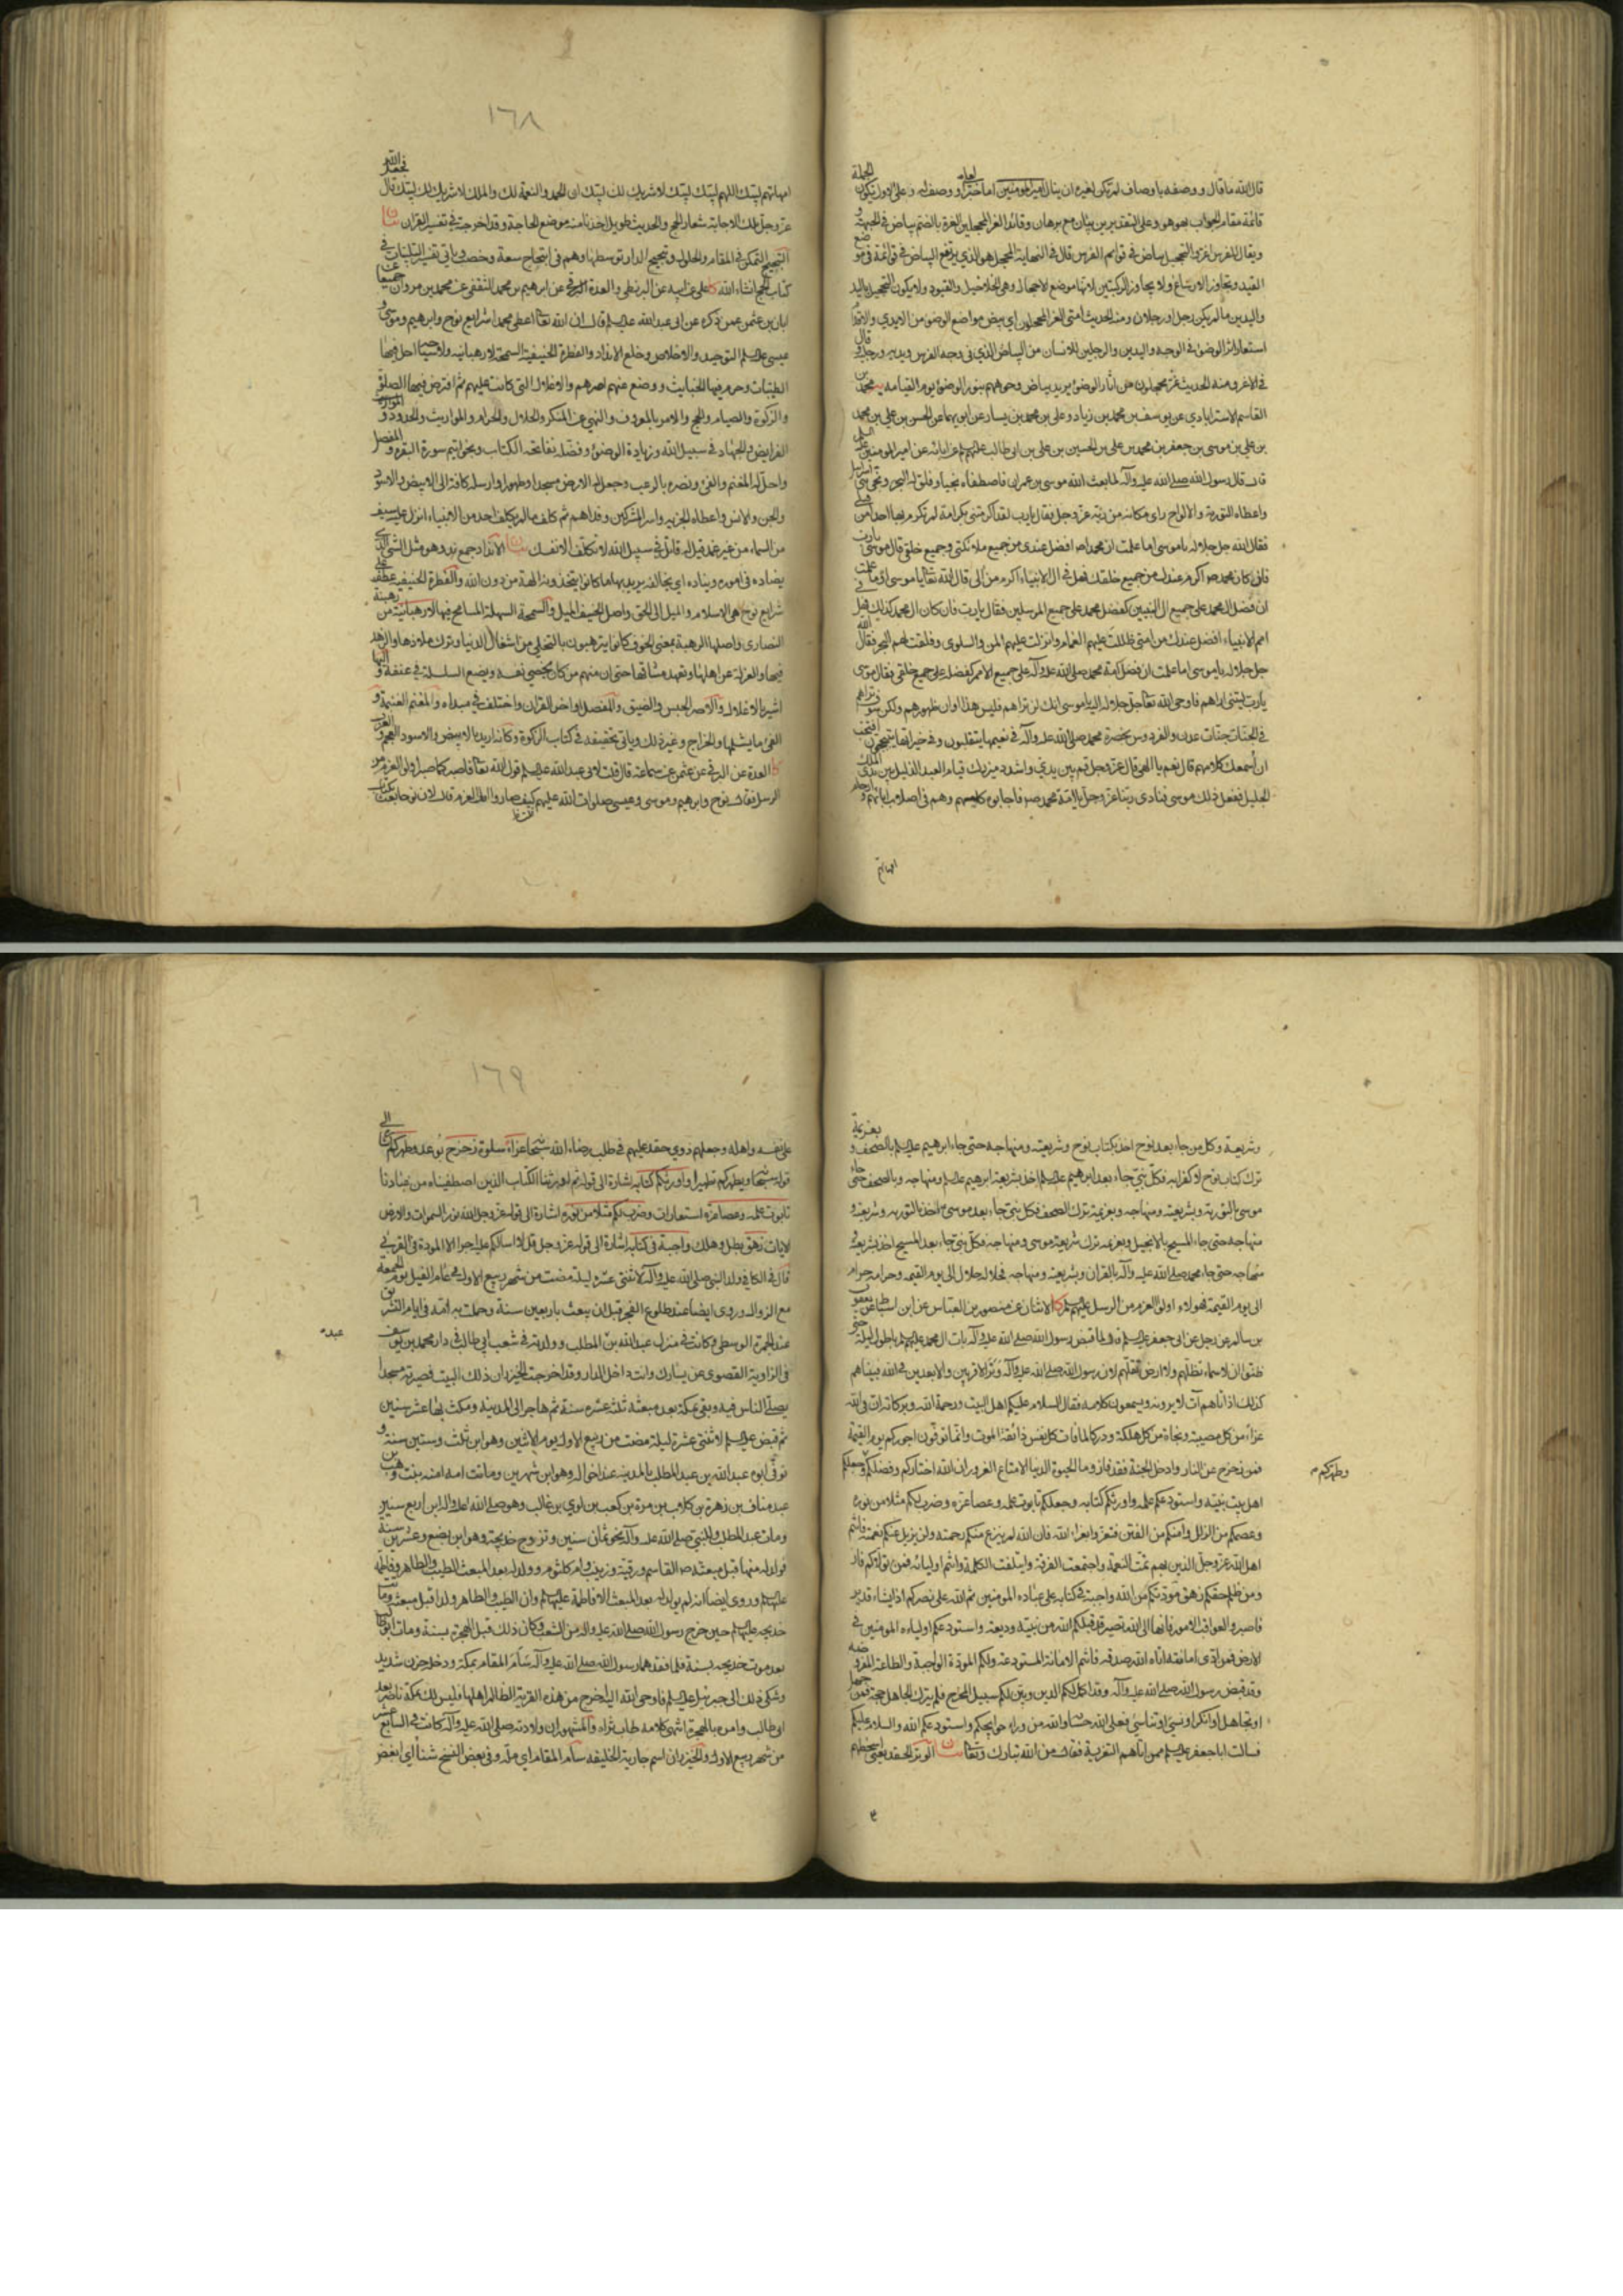 قال الله ما قال ووصفه باوصاف لم تكن لغيره ان ينال امير المؤمنين اما خبرا او وصف له وعلى الاول يكون الجملة
قائمة مقام الجواب بهو هو وعلى التقديرين بيان مع برهان وقائد الغر المحجلين الغرة بالضم بياض في الجبهة و
ويقال للفرس اغر والتحجيل بياض في قوايم الفرس قال في النهاية المحجل هو الذي يرتفع البياض في قوائمه في موضع
القيد ويجاوز الارساغ ولا يجاوز الركبتين لانها موضع الاحجال وهي الخلاخيل والقيود ولا يكون التحجيل باليد
واليدين ما لم يكن رجل او رجلان ومنه الحديث امتي الغر المحجلون اي بيض مواضع الوضوء من الايدي والاقدام
استعار اثر الوضوء في الوجه واليدين والرجلين للانسان من البياض الذي في وجه الفرس ويديه ورجليه وقال
في الاغر ومنه الحديث غر محجلون من اثار الوضوء يريد بياض وجوههم بنور الوضوء يوم القيامة محمد بن
القاسم الاسترابادي عن يوسف بن محمد بن زياد وعلي بن محمد بن يسار عن ابويهما عن الحسن بن علي بن محمد
بن علي بن موسى بن جعفر بن محمد بن علي بن الحسين بن علي بن ابي طالب عليهم السلام عن ابائه عن امير المؤمنين عليه السلم
قال قال رسول الله صلى الله عليه وآله لما بعث الله موسى بن عمران فاصطفاه نجيا وفلق له البحر ونجى بني اسرائيل
واعطاه التورية والالواح راى مكانه من ربه عز وجل فقال يا رب لقد اكرمتني بكرامة لم تكرم بها احدا من قبلي
فقال الله جل جلاله يا موسى اما علمت ان محمدا افضل عندي من جميع ملائكتي وجميع خلقي قال موسى يا رب
فان كان محمد اكرم عندك من جميع خلقك فهل في ال الانبياء اكرم من الي قال الله تعالى يا موسى اوما علمت
ان فضل ال محمد على جميع ال النبيين كفضل محمد على جميع المرسلين فقال يا رب فان كان ال محمد كذلك فهل في
امم الانبياء افضل عندك من امتي ظللت عليهم الغمام وانزلت عليهم المن والسلوى وفلقت لهم البحر فقال الله
جل جلاله يا موسى اما علمت ان فضل امة محمد صلى الله عليه وآله على جميع الامم كفضله على جميع خلقي فقال موسى
يا رب ليتني اراهم فاوحى الله تعالى جل جلاله اليه يا موسى انك لن تراهم فليس هذا اوان ظهورهم ولكن سوف تراهم
في الجنات جنات عدن والفردوس بحضرة محمد صلى الله عليه وآله في نعيمها يتقلبون وفي خيراتها يتبجحون افتحب
ان اسمعك كلامهم قال نعم يا الهي قال عز وجل قم بين يدي واشدد ميزرك قيام العبد الذليل بين يدي الملك
الجليل ففعل ذلك موسى فنادى ربنا عز وجل يا امة محمد فاجابوه كلهم وهم في اصلاب ابائهم وارحام
امهاتهم
١٦٨
امهاتهم لبيك اللهم لبيك لبيك لا شريك لك لبيك ان الحمد والنعمة لك والملك لا شريك لك لبيك قال فجعل الله
عز وجل تلك الاجابة شعار الحج والحديث طويل اخذنا منه موضع الحاجة وقد اخرجته في تفسير القران بيان
التبجح التمكن في المقام والحلول وتبجح الدار توسطها وهم في ابتحاح سعة وخصب وياتي تفسير التلبيات في
كتاب الحج انشاء الله كا علي عن ابيه عن البزنطي والعدة البرقي عن ابرهيم بن محمد الثقفي عن محمد بن مروان جميعا عن
ابان بن عثمن عمن ذكره عن ابي عبد الله عليه السلم قال ان الله تعالى اعطى محمدا شرايع نوح وابرهيم وموسى و
عيسى عليهم السلم التوحيد والاخلاص وخلع الانداد والفطرة الحنيفية السمحة لا رهبانية ولا سياحة احل فيها
الطيبات وحرم فيها الخبايث ووضع عنهم اصرهم والاغلال التي كانت عليهم ثم افترض فيها الصلوة
والزكوة والصيام والحج والامر بالمعروف والنهي عن المنكر والحلال والحرام والمواريث والحدود و
الفرايض والجهاد في سبيل الله وزيادة الوضوء وفضله بفاتحة الكتاب وبخواتيم سورة البقرة والمفصل
واحل له المغنم والفئ ونصره بالرعب وجعل له الارض مسجدا وطهورا وارسله كافة الى الابيض والاسود
والجن والانس واعطاه الجزية واسر المشركين وفداهم ثم كلف ما لم يكلف احد من الانبياء انزل عليه سيف
من السماء من غير غمد وقيل له قاتل في سبيل الله لا تكلف الا نفسك بيان الانداد جمع ند وهو مثل الشئ الذي
يضاده في اموره ويناده اي يخالفه يريد بها ما كانوا يتخذونه الهة من دون الله والفطرة الحنيفية عطف على
شرايع نوح هي الاسلام والميل الى الحق واصل الحنيف الميل والسمحة السهلة المسامح فيها والرهبانية من رهبنة
النصارى واصلها الرهبة بمعنى الخوف كانوا يترهبون بالتخلي من اشغال الدنيا وترك ملاذها والزهد
فيها والعزلة عن اهلها وتعهد مشاقها حتى ان منهم من كان يخصي نفسه ويضع السلسلة في عنقه واليها
اشير بالاغلال والاصر الحبس والضيق والمفصل اواخر القران واختلف في مبداه والمغنم الغنيمة و
الفئ ما يشملها والخراج وغير ذلك وياتي تحقيقه في كتاب الزكوة وكانه اريد بالابيض والاسود العجم والعرب
كا العدة عن البرقي عن عثمن عن سماعة قال قلت لابي عبد الله عليه السلم قول الله تعالى فاصبر كما صبر اولوا العزم من
الرسل فقال نوح وابرهيم وموسى وعيسى صلوات الله عليهم كيف صاروا اولي العزم قال لان نوحا بعث بكتاب
وشريعة وكل من جاء بعد نوح اخذ بكتاب نوح وشريعته ومنهاجه حتى جاء ابرهيم عليه السلم بالصحف و بعزيمة
ترك كتاب نوح لا كفرا به فكل نبي جاء بعد ابرهيم عليه السلم اخذ بشريعة ابرهيم عليه السلم ومنهاجه وبالصحف حتى جاء
موسى بالتورية وبشريعته ومنهاجه وبعزيمة ترك الصحف فكل نبي جاء بعد موسى اخذ بالتورية وشريعته و
منهاجه حتى جاء المسيح بالانجيل وبعزيمة ترك شريعة موسى ومنهاجه فكل نبي جاء بعد المسيح اخذ بشريعته و
منهاجه حتى جاء محمد صلى الله عليه وآله بالقران وبشريعته ومنهاجه فحلاله حلال الى يوم القيمة وحرامه حرام
الى يوم القيمة فهولاء اولوا العزم من الرسل عليهم السلم كا الاثنان عن منصور بن العباس عن ابن اسباط عن يعقوب
بن سالم عن رجل عن ابي جعفر عليه السلم قال لما قبض رسول الله صلى الله عليه وآله بات ال محمد عليهم السلم باطول ليلة حتى
ظنوا ان لا سماء تظلهم ولا ارض تقلهم لان رسول الله صلى الله عليه وآله وتر الاقربين والابعدين في الله فبيناهم
كذلك اذ اتاهم آت لا يرونه ويسمعون كلامه فقال السلام عليكم اهل البيت ورحمة الله وبركاته ان في الله
عزاء من كل مصيبة ونجاة من كل هلكة ودركا لما فات كل نفس ذائقة الموت وانما توفون اجوركم يوم القيمة
فمن زحزح عن النار وادخل الجنة فقد فاز وما الحيوة الدنيا الا متاع الغرور ان الله اختاركم وفضلكم وجعلكم
وطهركم
اهل بيت نبيه واستودعكم علمه واورثكم كتابه وجعلكم تابوت علمه وعصا عزه وضرب لكم مثلا من نوره
وعصمكم من الزلل وامنكم من الفتن فتعزوا بعزاء الله فان الله لم ينزع منكم رحمته ولن يزيل عنكم نعمته فانتم
اهل الله عز وجل الذين بهم تمت النعمة واجتمعت الفرقة وايتلفت الكلمة وانتم اولياؤه فمن تولاكم فاز
ومن ظلم حقكم زهق مودتكم من الله واجبة في كتابه على عباده المؤمنين ثم الله على نصركم اذا يشاء قدير
فاصبروا لعواقب الامور فانها الى الله تصير قد قبلكم الله من نبيه وديعة واستودعكم اولياءه المؤمنين في
الارض فمن ادى امانته اتاه الله صدقه فانتم الامانة المستودعة ولكم المودة الواجبة والطاعة المفروضة
وقد قبض رسول الله صلى الله عليه وآله وقد اكمل لكم الدين وبين لكم سبيل المخرج فلم يترك لجاهل حجة فمن جهل
او تجاهل او انكر او نسي او تناسى فعلى الله حسابه والله من وراء حوايجكم واستودعكم الله والسلام عليكم
فسالت ابا جعفر عليه السلم ممن اتاهم التعزية فقال من الله تبارك وتعالى بيان الوتر الحقد يعني اسخطهم
١٦٩
على نفسه واهله وجعلهم ذوي حقد عليهم في طلب رضاء الله سبحانه عزاء سلوة زحزح بوعد وطهركم اشارة الى
قوله سبحانه ويطهركم تطهيرا واورثكم كتابه اشارة الى قوله ثم اورثنا الكتاب الذين اصطفيناه من عبادنا
تابوت علمه وعصا عزه استعارات وضرب لكم مثلا من نوره اشارة الى قوله عز وجل الله نور السموات والارض
الايات زهق بطل وهلك واجبة في كتابه اشارة الى قوله عز وجل قل لا اسالكم عليه اجرا الا المودة في القربى
قال في الكافي ولد النبي صلى الله عليه وآله لاثنتي عشرة ليلة مضت من شهر ربيع الاول في عام الفيل يوم الجمعة
مع الزوال وروى ايضا عند طلوع الفجر قبل ان يبعث باربعين سنة وحملت به امه في ايام التشريق
عند الجمرة الوسطى وكانت في منزل عبد الله بن المطلب وولدته في شعب ابي طالب في دار محمد بن يوسف
عبد
في الزاوية القصوى عن يسارك وانت داخل الدار وقد اخرجت الخيزران ذلك البيت فصيرته مسجدا
يصلي الناس فيه وبقي بمكة بعد مبعثه ثلثة عشرة سنة ثم هاجر الى المدينة ومكث بها عشر سنين
ثم قبض عليه السلم لاثنتي عشرة ليلة مضت من ربيع الاول يوم الاثنين وهو ابن ثلث وستين سنة و
توفي ابوه عبد الله بن عبد المطلب بالمدينة عند اخواله وهو ابن شهرين وماتت امه امنة بنت وهب بن
عبد مناف بن زهرة بن كلاب بن مرة بن كعب بن لوي بن غالب وهو صلى الله عليه وآله ابن اربع سنين
ومات عبد المطلب وللنبي صلى الله عليه وآله نحو ثمان سنين وتزوج خديجة وهو ابن بضع وعشرين سنة
فولد له منها قبل مبعثه القاسم ورقية وزينب وام كلثوم وولد له بعد المبعث الطيب والطاهر وفاطمة
عليها السلم وروى ايضا انه لم يولد له بعد المبعث الا فاطمة عليها السلم وان الطيب والطاهر ولدا قبل مبعثه وماتت
خديجة عليها السلم حين خرج رسول الله صلى الله عليه وآله من الشعب وكان ذلك قبل الهجرة بسنة ومات ابو طالب
بعد موت خديجة بسنة فلما فقدهما رسول الله صلى الله عليه وآله سام المقام بمكة ودخله حزن شديد
وشكى ذلك الى جبرئيل عليه السلم فاوحى الله اليه اخرج من هذه القرية الظالم اهلها فليس لك بمكة ناصر بعد
ابي طالب وامره بالهجرة انتهى كلامه طاب ثراه والمشهور ان ولادته صلى الله عليه وآله كانت في السابع عشر
من شهر ربيع الاول والخيزران اسم جارية الخليفة سام المقام اي مله وفي بعض النسخ شنا اي ابغض